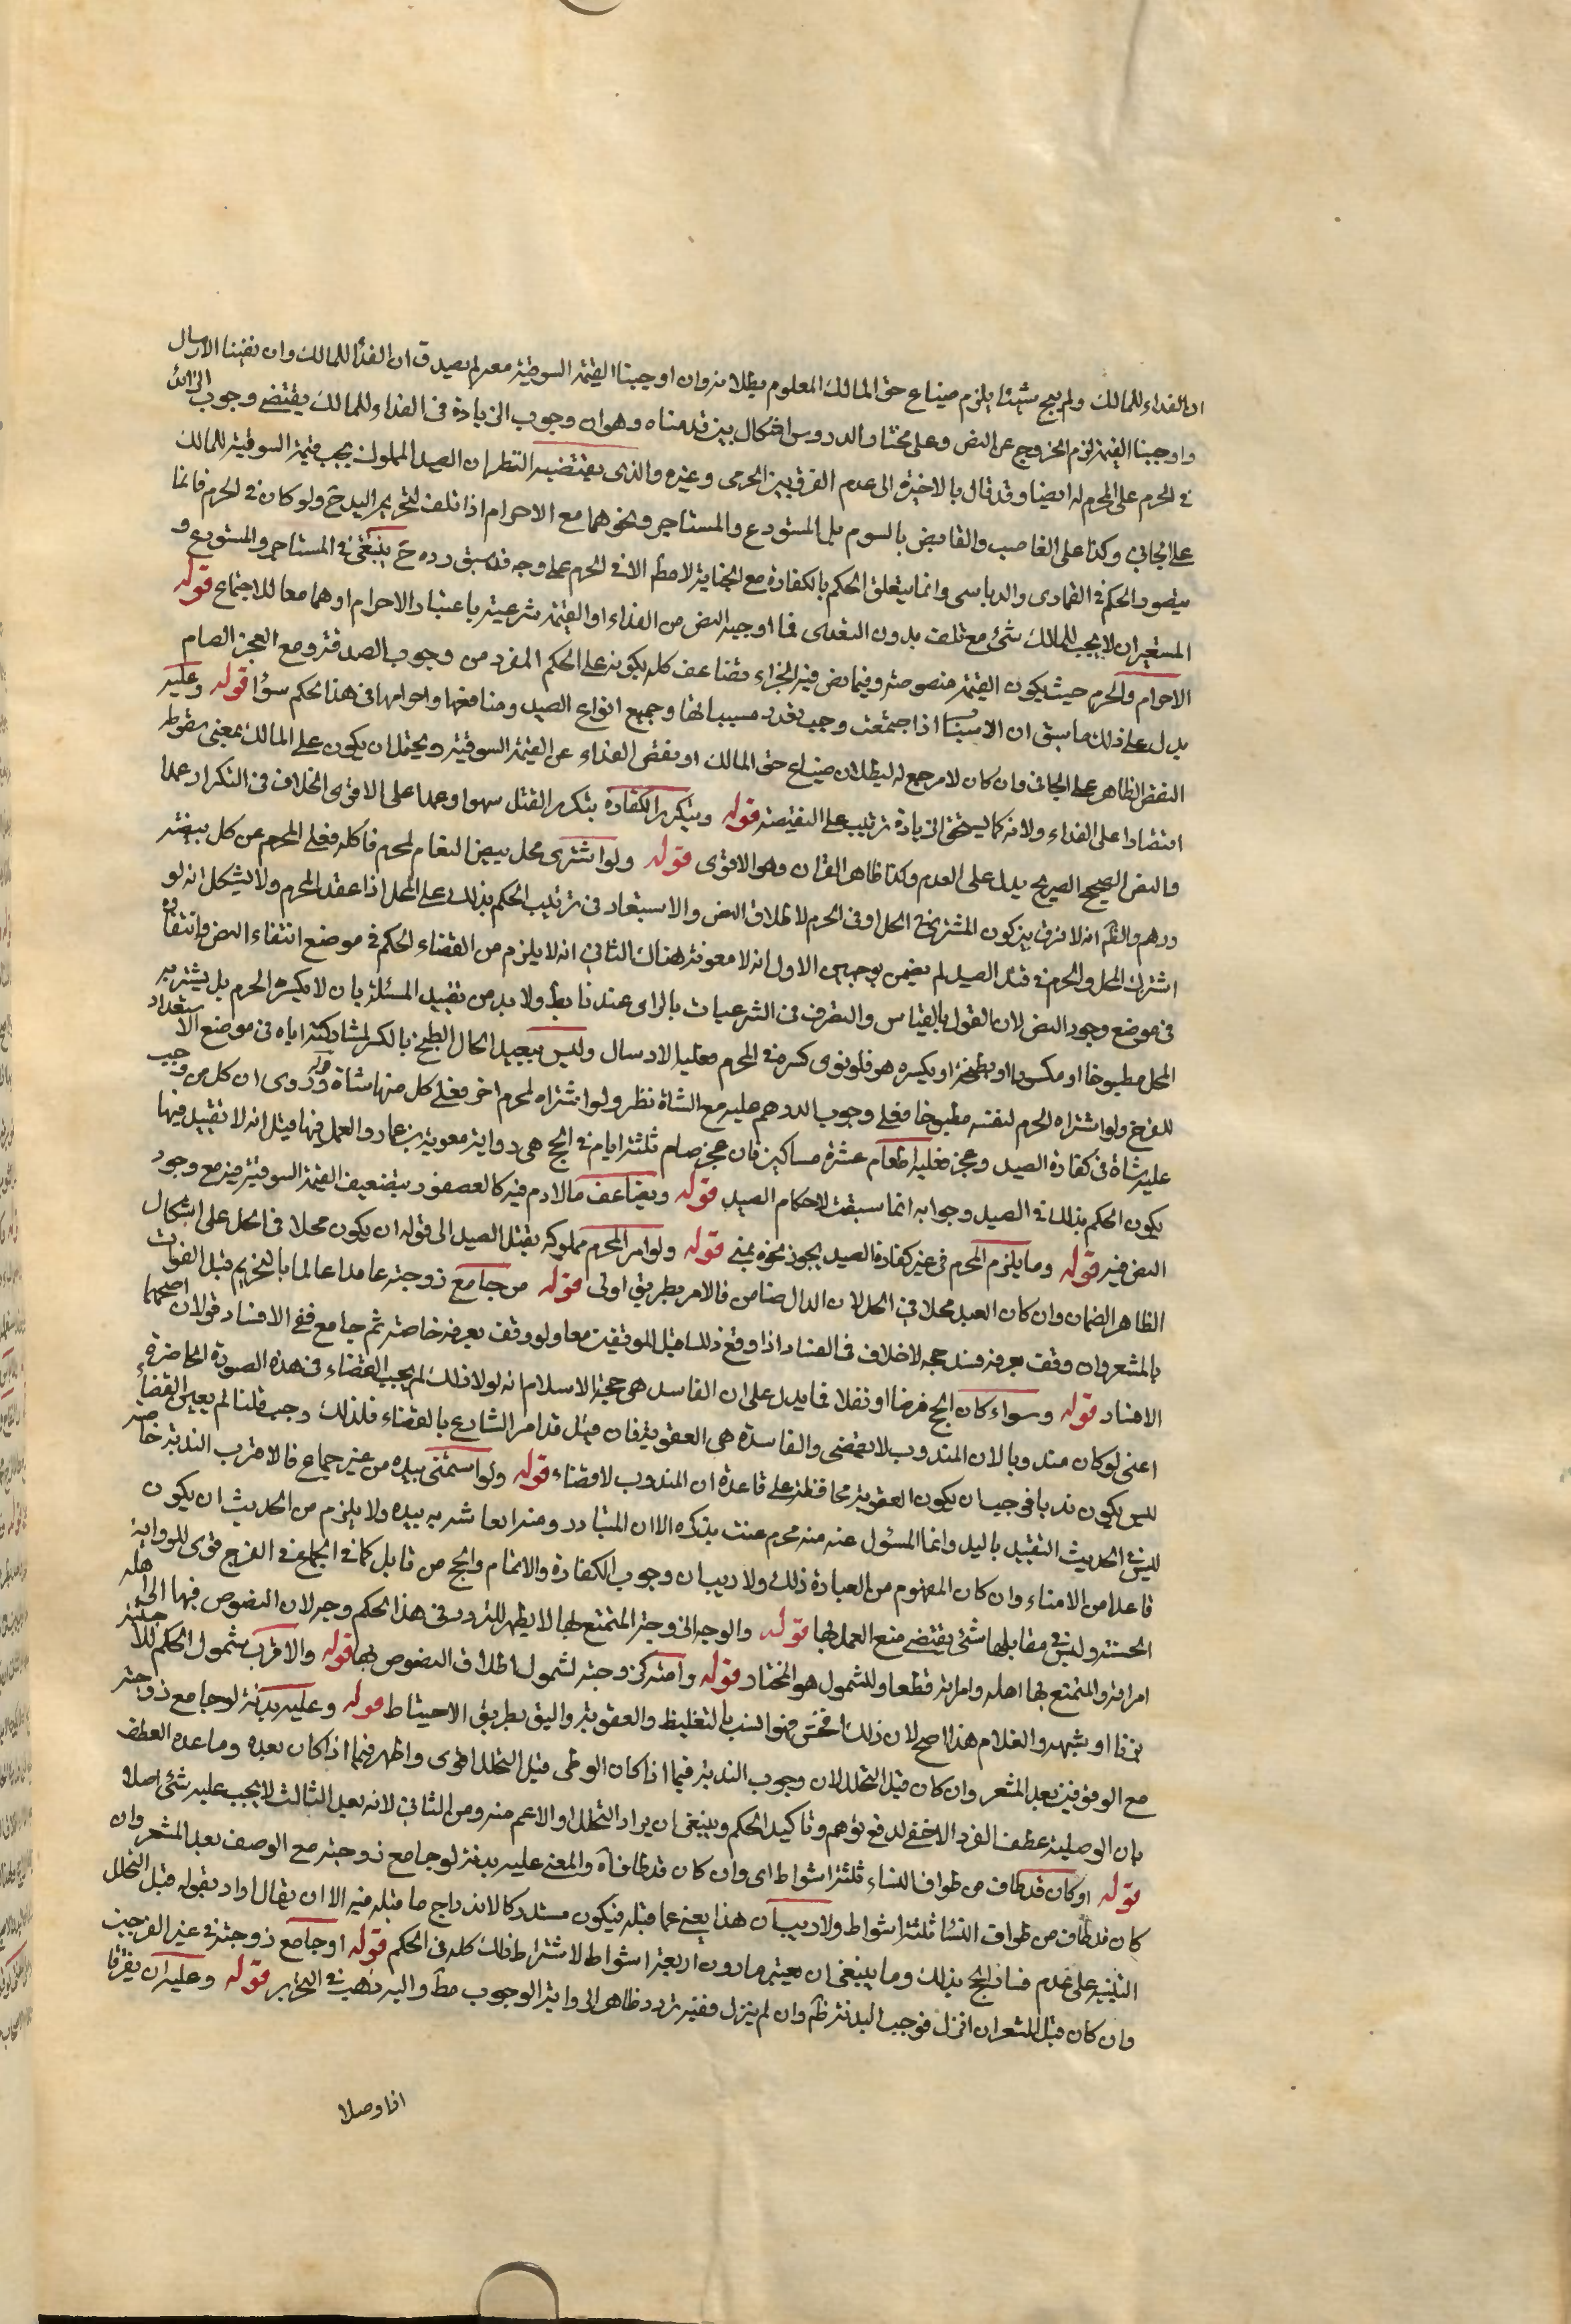 ان الفداء للمالك ولم يبح شيئا يلزم ضياع حق المالك المعلوم بطلانه وان اوجبنا القيمة السوقية معه لم يصدق ان الفداء للمالك وان نفينا الارسال
واوجبنا القيمة لزم الخروج عن النص وعلى مختار الدروس اشكال بين قدمناه وهو ان وجوب الزيادة في الفداء وللمالك يقتضي وجوب الزائد
في الحرم على المحرم له ايضا وقد قال بالاخيرة الى عدم الفرق بين الحرمي وغيره والذي يقتضيه النظر ان الصيد المملوك يجب قيمته السوقية للمالك
على الجاني وكذا على الغاصب والقابض بالسوم بل المستودع والمستاجر ونحوهما مع الاحرام اذا تلف لتحريم اليد ح ولو كان في الحرم فانما
يتصور الحكم في القماري والدباسي وانما يتعلق الحكم بالكفارة مع الجناية لا مط الا في الحرم على وجه قد سبق رده ح ينبغي في المستاجر والمستودع و
المستعير ان لا يجب للمالك شئ مع تلفه بدون التعدى فما اوجبه النص من الفداء او القيمة شرعية باعتبار الاحرام او هما معا للاجتماع قوله
الاحرام والحرم حيث يكون القيمة منصوصة وفيما نص فيه الجزاء تضاعف كله بكونه على الحكم المفرد من وجوب الصدقة ومع العجز الصيام
يدل على ذلك ما سبق ان الاسباب اذا اجتمعت وجب تعدد مسبباتها وجميع انواع الصيد ومنافعها واحوالها في هذا الحكم سواء قوله وعليه
النقض الظاهر على الجاني وان كان لا مرجع له لبطلان ضياع حق المالك او نقص الفداء عن القيمة السوقية ويحتمل ان يكون على المالك بمعنى سقوطه
اقتصارا على الفداء ولانه كما يستحق الزيادة ترتب عليه النقيصة قوله ويتكرر الكفارة بتكرر القتل سهوا وعمدا على الاقوى الخلاف في التكرار عمدا
والنص الصحيح الصريح يدل على العدم وكذا ظاهر القران وهو الاقوى قوله ولو اشترى محل بيض النعام لمحرم فاكله فعلى المحرم عن كل بيضة
درهم والظ انه لا فرق بين كون المشتري في الحل او في الحرم لاطلاق النص والاستبعاد في ترتيب الحكم بذلك على المحل اذا عقد المحرم ولا يشكل انه لو
اشترك المحل والمحرم في قتل الصيد لم يضمن بوجهين الاول انه لا معونة هناك الثاني انه لا يلزم من القضاء الحكم في موضع انتفاء النص وانتفاؤه
في موضع وجود النص لان القول بالقياس والتصرف في الشرعيات بالراى عندنا بط ولا بد من تقييد المسئلة بان لا يكسره المحرم بل يشتريه
المحل مطبوخا او مكسورا او يطبخه او يكسره هو فلو نوى كسره في المحرم فعليه الارسال وليس ببعيد الحال الطبخ بالكسر لمشاركته اياه في موضع الاستعداد
للفرخ ولو اشتراه المحرم لنفسه مطبوخا فعلى وجوب الدرهم عليه مع الشاة نظر ولو اشتراه لمحرم اخر فعلى كل منهما شاة قوله وروى ان كل من وجب
عليه شاة في كفارة الصيد وعجز فعليه اطعام عشرة مساكين فان عجز صام ثلثة ايام في الحج هي رواية معوية بن عمار والعمل فيها قيل انه لا تقييد فيها
يكون الحكم بذلك في الصيد وجوابه انما سبقت لاحكام الصيد قوله ويضاعف مالادم فيه كالعصفور بتضعيف القيمة السوقية فيه مع وجود
النص فيه قوله وما يلزم المحرم في غير كفارة الصيد يجوز نحره بمنى قوله ولو امر المحرم مملوكه بقتل الصيد الى قوله ان يكون محلا في الحل على اشكال
الظاهر الضمان وان كان العبد محلا في الحل لان الدال ضامن فالامر بطريق اولى قوله من جامع زوجته عامدا عالما بالتحريم قبل الوقوف
بالمشعر وان وقف بعرفة فسد حجه لا خلاف في الفساد اذا وقع ذلك قبل الموقفين معا ولو وقف بعرفة خاصة ثم جامع ففي الافساد قولان اصحهما
الافساد قوله وسواء كان الحج فرضا او نفلا فما يدل على ان الفاسد هي حجة الاسلام انه لولا ذلك لم يجب القضاء في هذه الصورة الحاضرة
اعنى لو كان مندوبا لان المندوب لا يقضى والفاسدة هي العقوبة فان قيل قد امر الشارع بالقضاء فلذلك وجب قلنا لم يعهد القضاء
لليس يكون ندبا فوجب ان يكون العقوبة محافظة على قاعدة ان المندوب لا قضاء قوله ولو استمنى بيده من غير جماع فالاقرب البدنة خاصة
ليس في الحديث التقييد باليد وانما المسؤل عنه منه محرم عبث بذكره الا ان المتبادر منه انه باشره بيده ولا يلزم من الحديث ان يكون
فاعلا من الامناء وان كان المفهوم من العبارة ذلك ولا ريب ان وجوب الكفارة والاتمام والحج من قابل كما في الجماع في الفرج قوى للرواية
الحسنة وليس في مقابلها شئ يقتضي منع العمل بها قوله والوجه الزوجة المتمتع بها لا يظهر للتردد في هذا الحكم وجه لان النصوص فيها الى اهله
امراته والمتمتع بها اهله وامراته قطعا وللشمول هو المختار قوله وامته كزوجته لشمول اطلاق النصوص لها قوله والاقرب شمول الحكم للاجنبية
بزنا او شبهة والغلام هذا اصح لان ذلك افحش فهو انسب بالتغليظ والعقوبة واليق بطريق الاحتياط قوله وعليه بدنة لو جامع زوجته
مع الوقوفين بعد المشعر وان كان قبل التحلل لان وجوب البدنة فيما اذا كان الوطى قبل التحلل اقوى واظهر فيما اذا كان بعده وما عده العطف
بان الوصلية عطف الفرد الاخفى لدفع توهم وتاكيد الحكم وينبغى ان يراد التحلل او الاعم منه ومن الثاني لانه بعد الثالث لا يجب عليه شئ اصلا
قوله او كان قد طاف من طواف النساء ثلثة اشواط اى وان كان قد طاف آه والمعنى عليه بدنة لو جامع زوجته مع الوصف بعد المشعر وان
كان قد طاف من طواف النساء ثلثة اشواط ولا ريب ان هذا يغني عما قبله فيكون مستدركا لاندراج ما قبله فيه الا ان يقال اراد بقوله قبل التحلل
التنبيه على عدم فساد الحج بذلك وما ينبغى ان يعتبر ما دون اربعة اشواط لاشتراط ذلك كله في الحكم قوله او جامع زوجته في غير الفرجين
وان كان قبل المشعر ان انزل فوجب البدنة ظ وان لم ينزل ففيه تردد ظاهر الرواية الوجوب مط واليه ذهب في التحرير قوله وعليه ان يفترقا
اذا وصلا